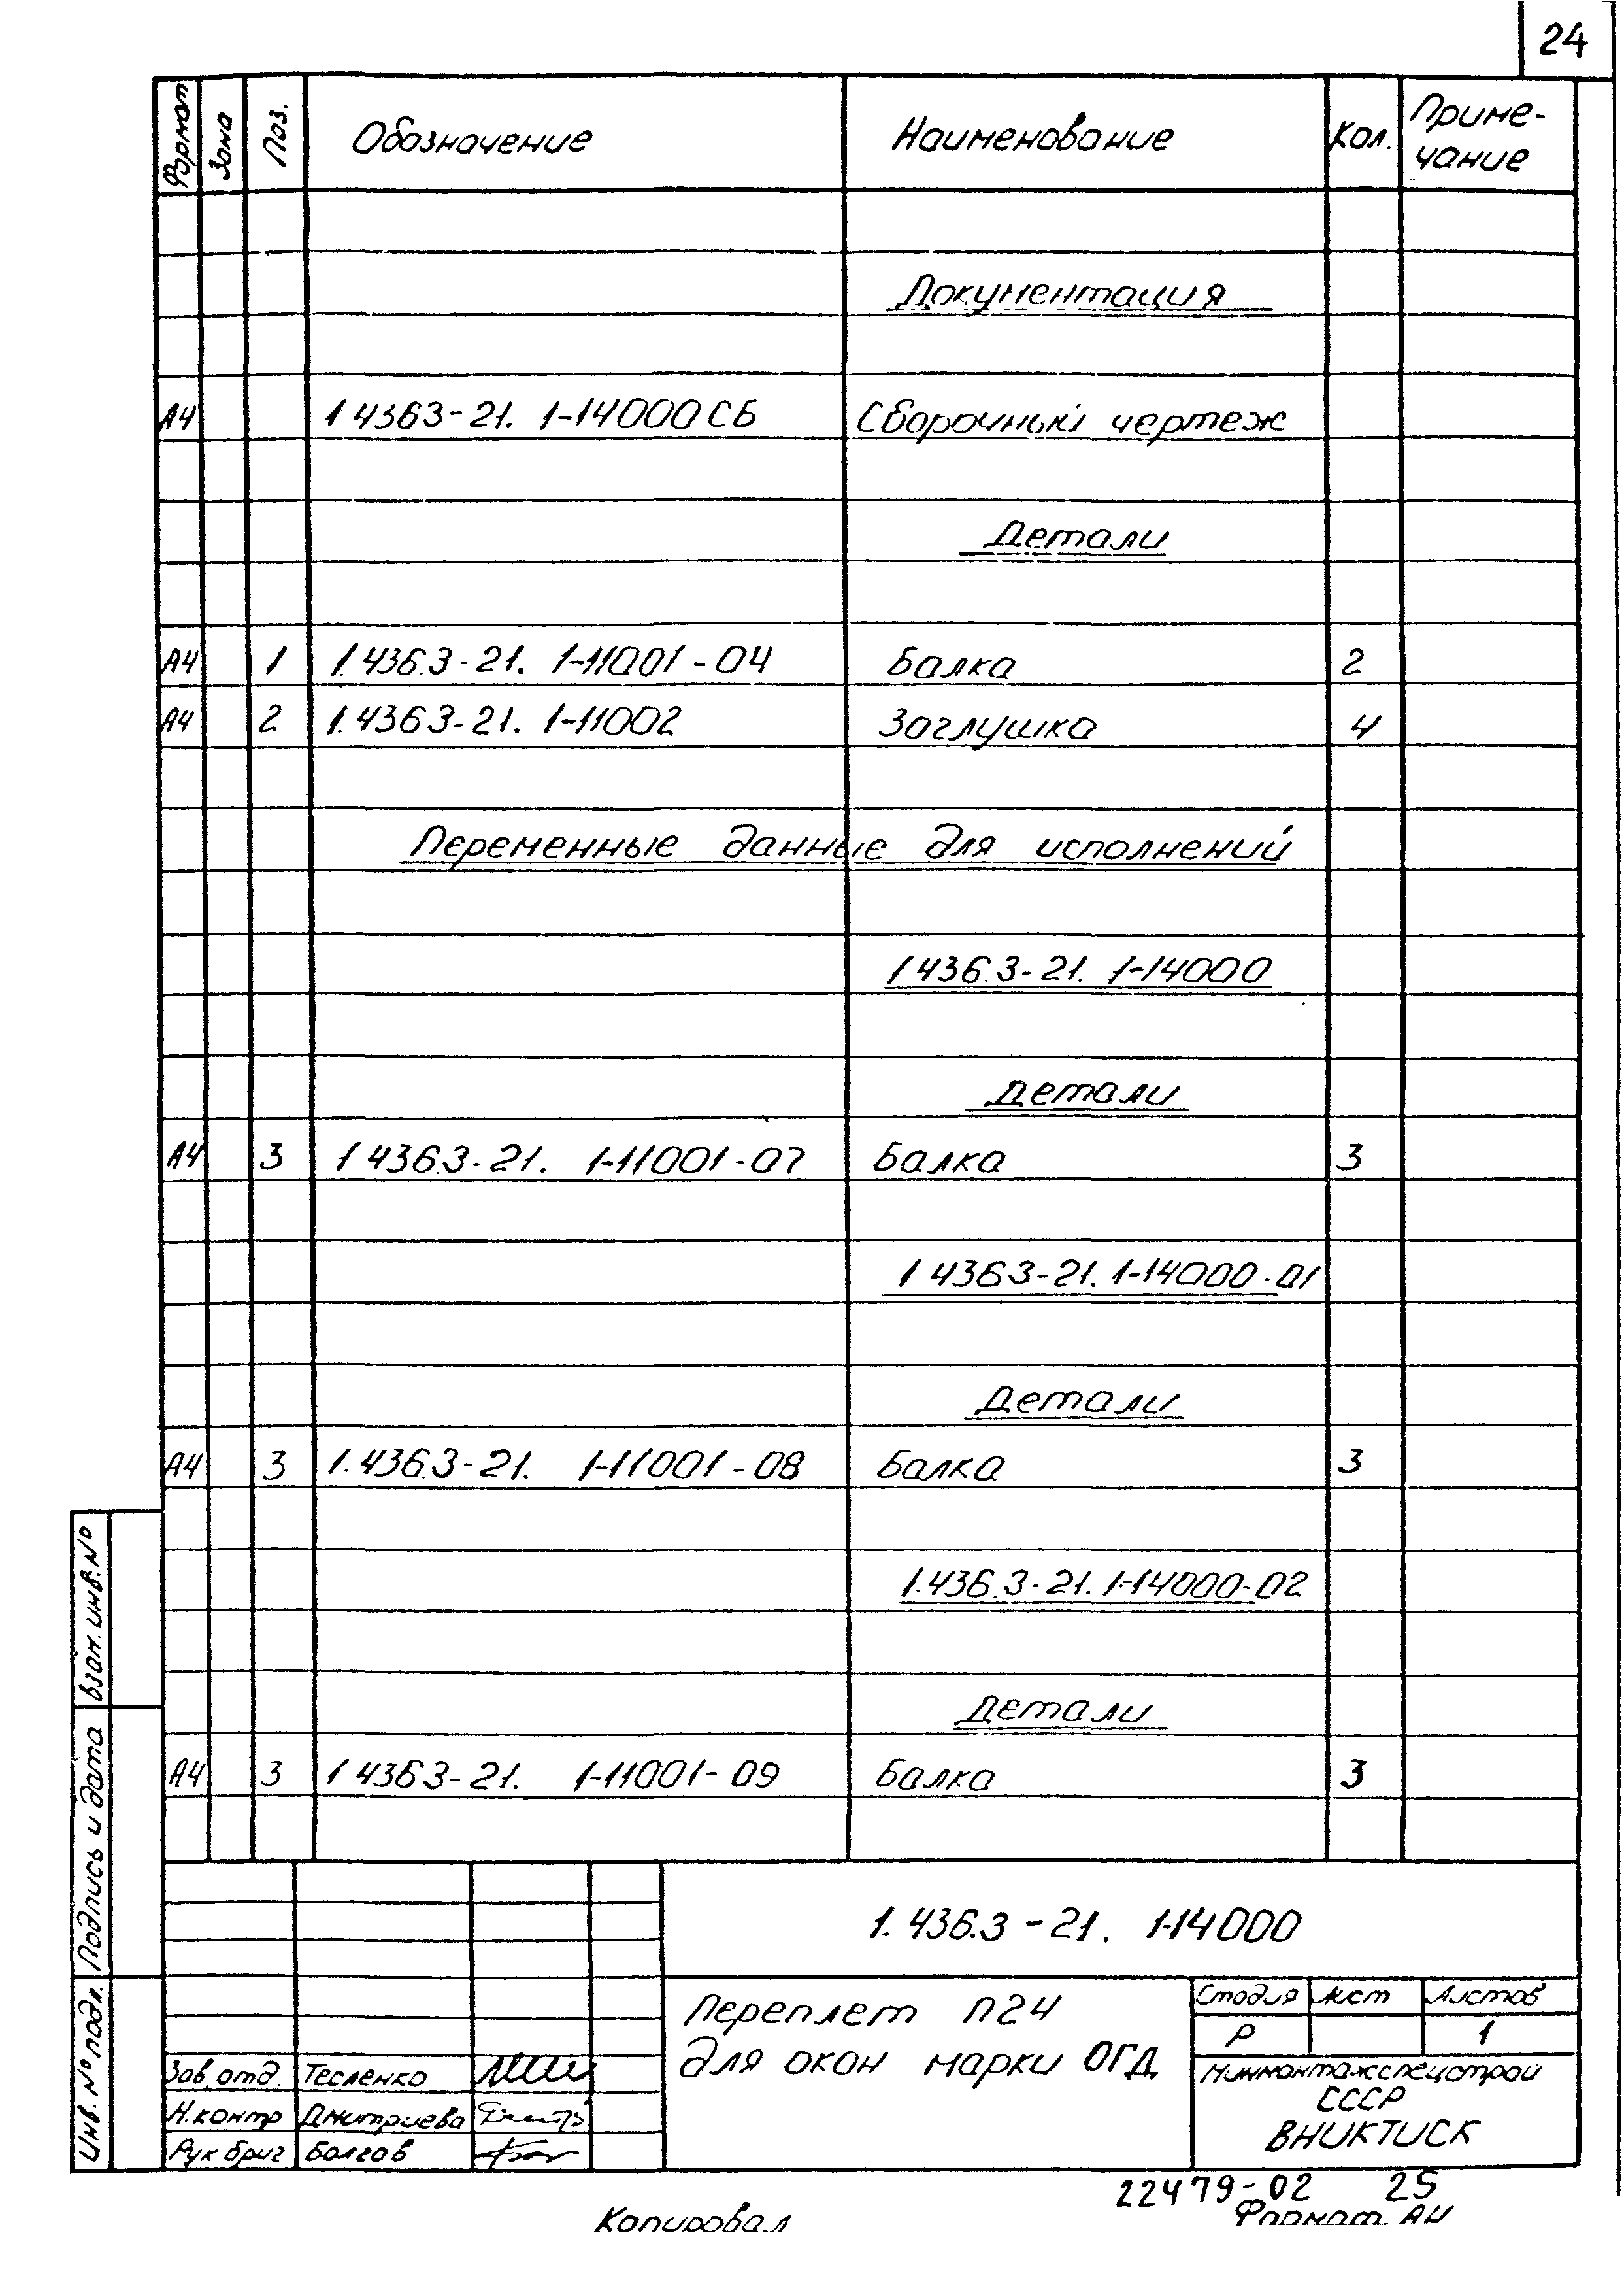 24
Формат Зона Поз. Обозначение Наименование Кол. Приме-
чание
Документация
А4 1 4363-21. 1-14000 СБ Сборочный чертеж
Детали
А4 1 1.436.3-21. 1-11001-04 Балка 2
А4 2 1.4363-21. 1-11002 Заглушка 4
Переменные данные для исполнений
1 436.3-21. 1-14000
Детали
А4 3 1 436.3-21. 1-11001-07 Балка 3
1 4363-21. 1-14000-01
Детали
А4 3 1.436.3-21. 1-11001-08 Балка 3
1.436.3-21. 1-14000-02
Детали
А4 3 1 4363-21. 1-11001-09 Балка 3
Взам. инв. №
Подпись и дата
Инв. № подл.
1. 436.3-21. 1-14000
Переплет П24
для окон марки ОГД
Стадия Лист Листов
Р 1
Минмонтажспецстрой
СССР
ВНИКТИСК
Зав. отд. Тесленко
Н. контр Дмитриева
Рук бриг Болгов
22479-02 25
Копировал Формат А4